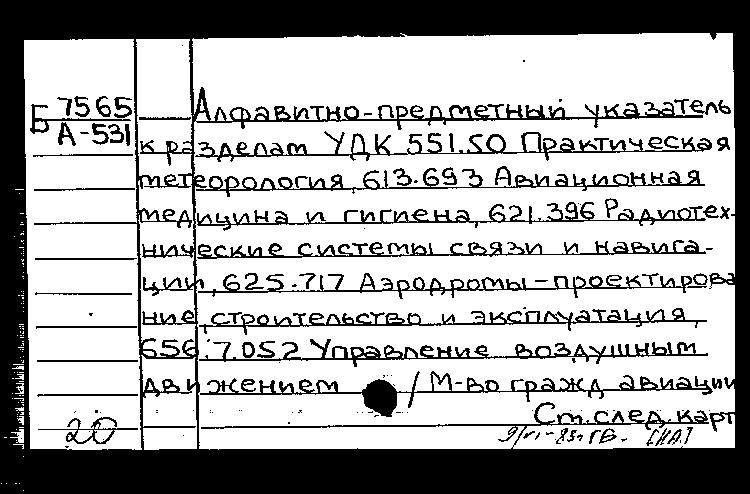 Б 7565
А-531
Алфавитно-предметный указатель
к разделам УДК 551.50 Практическая
метеорология, 613.693 Авиационная
медицина и гигиена, 621.396 Радиотех-
нические системы связи и навига-
ции, 625.717 Аэродромы-проектирова
ние, строительство и эксплуатация,
656.7.052 Управление воздушным
движением / М-во гражд авиации
Ст. след. карт
20
9/VI-83г ГВ. [НА]